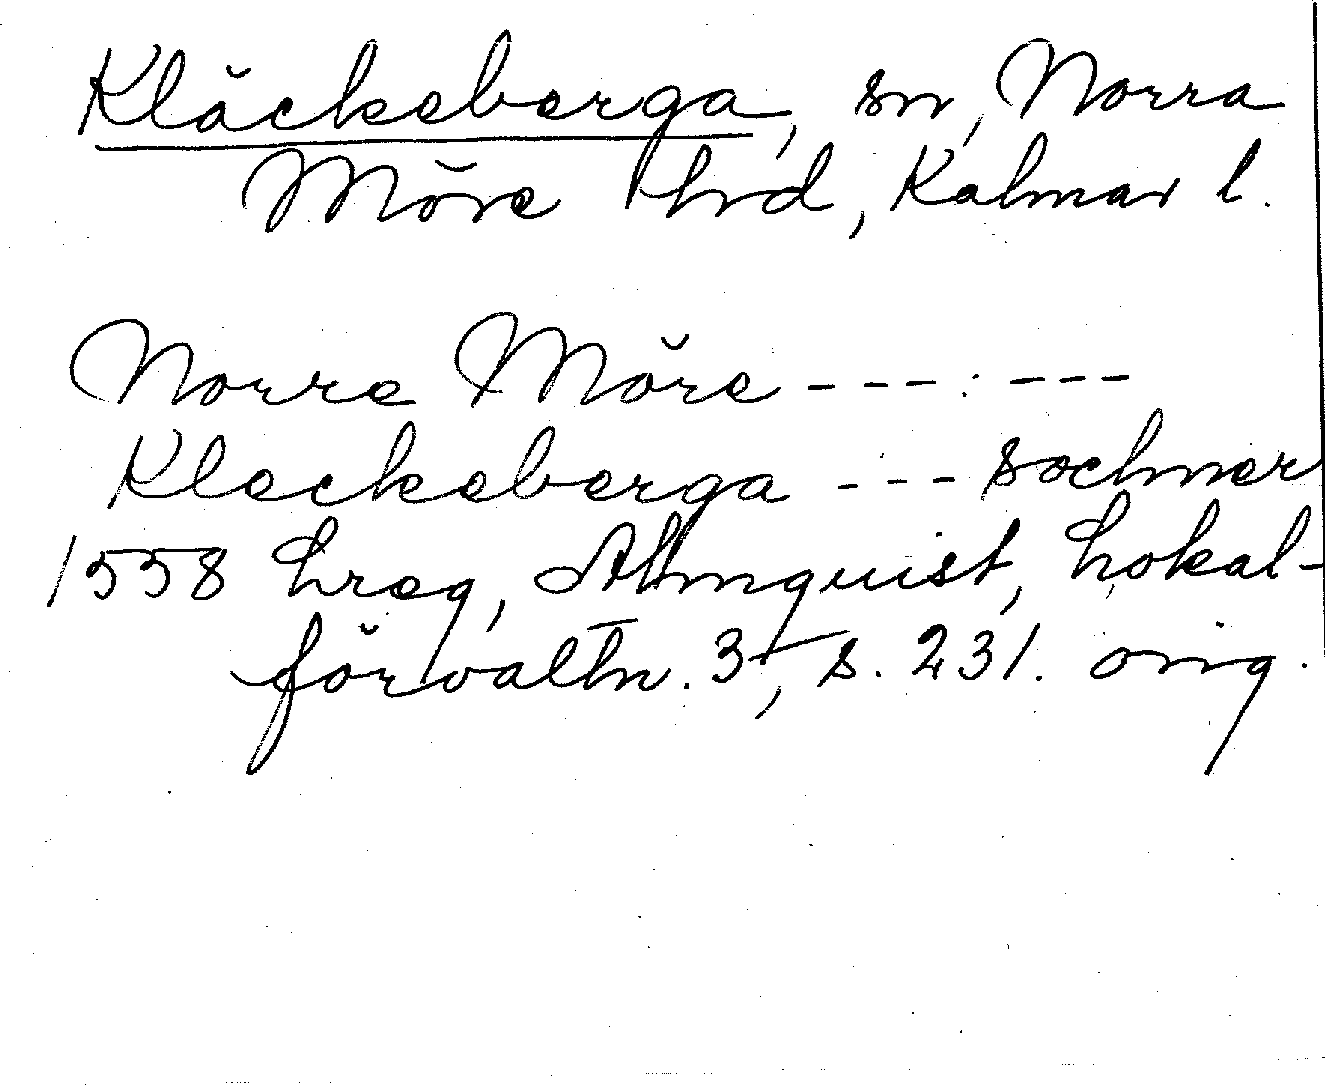 Kläckeberga, sn, Norra
Möre hrd, Kalmar l.
Norre Möre ---:---
Kleckeberga --- sochner
1558 Lreg, Almquist, Lokal-
förvaltn. 3, s. 231. orig.